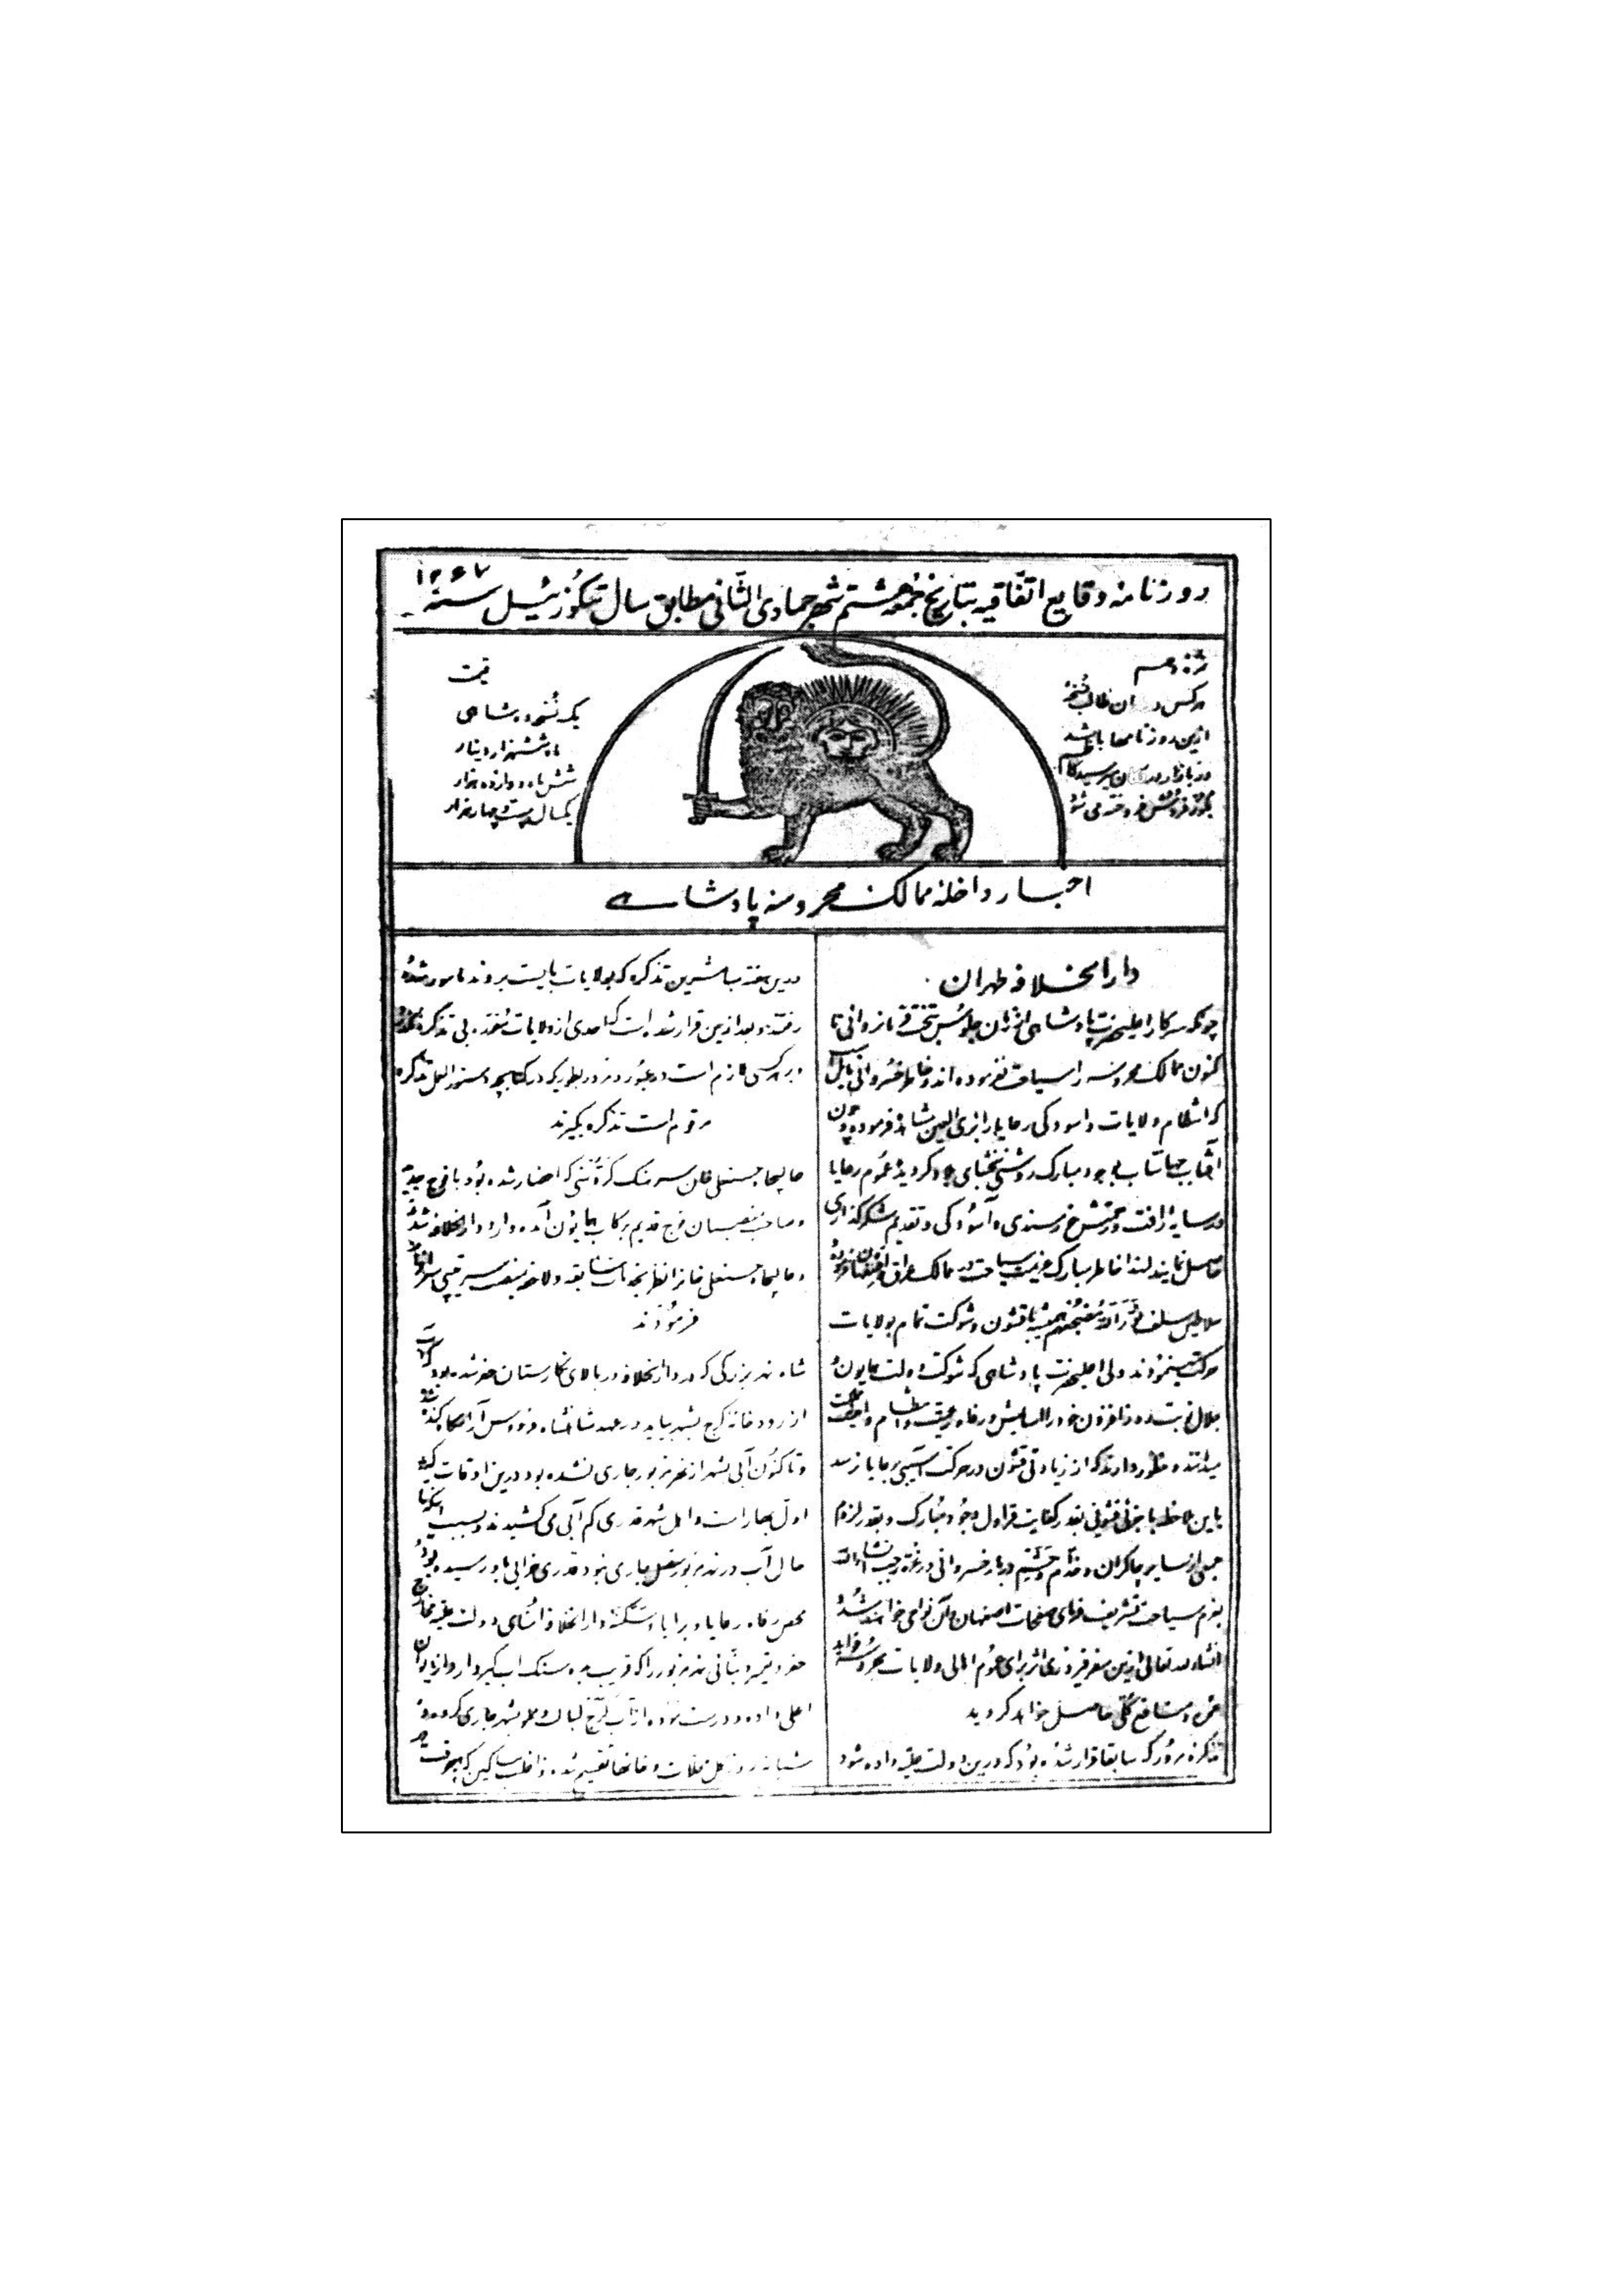 روزنامه وقایع اتفاقیه بتاریخ جمعه هشتم شهر جمادی الثانی مطابق سال تنکوزئیل سنه ۱۲۶۷
نمره دهم
هرکس در طهران طالب نسخه
ازین روزنامها باشد
در بازار در دکان میر سید کاظم
بلور فروش فروخته می شود
قیمت
یک نسخه ده شاهی
ششهزار دینار
شش ماه دوازده هزار
یکسال بیست و چهار هزار
اخبار داخله ممالک محروسه پادشاهی
دارالخلافه طهران
چونکه سرکار اعلیحضرت پادشاهی از زمان جلوس تخت فرمانروائی تا
کنون ممالک محروسه را سیاحت نفرموده اند و خاطر خسروانی مایل
که انتظام ولایات و آسودگی رعایا را برای العین مشاهده فرموده چون
آفتاب جهانتاب بوجود مبارک روشنی بخشای گردیده عموم رعایا
در سایه رأفت و مرحمتش خرسندی و آسودگی و تقدیم شکرگذاری
حاصل نمایند لهذا خاطر مبارک عزیمت سیاحت در ممالک عراق
سلاطین سلف نورالله مضجعهم همیشه با قشون و شوکت تمام بولایات
حرکت مینمودند ولی اعلیحضرت پادشاهی که شوکت دولت همایون و
جلال نوبت روزافزون خود را در آسایش و رفاه رعیت و انتظام و
میدانند منظور دارند که از زیادتی قشون در حرکت آسیبی برعایا نرسد
باین ملاحظه با جزئی قشونی بقدر کفایت قراول وجود مبارک و بقدر لزوم
جمعی از سایر چاکران و خدام و حشم دربار خسروانی در غره رجب انشاءالله
بعزم سیاحت تشریف فرمای صفحات اصفهان و آن نواحی خواهند شد و
انشاءالله تعالی ازین سفر فیروزی اثر برای عموم اهالی ولایات محروسه فواید
و منافع کلی حاصل خواهد گردید
تذکره مرور که سابقا قرار شده بود که درین دولت علیه داده شود
درین هفته مباشرین تذکره که بولایات بایست بروند مامور شده
رفتند و بعد ازین قرار شده است که احدی از ولایات متفرقه بی تذکره
و بر هر کسی لازم است در عبور و مرور بطوریکه در کتابچه دستورالعمل تذکره
مرقوم است تذکره بگیرند
عالیجاه حسنعلی خان سرهنگ که احضار شده بود با فوج جدید
و صاحب منصبان فوج قدیم برکاب همایون آمده وارد دارالخلافه شد
و عالیجاه حسنعلی خانرا نظر بخدمات سابقه و لاحقه بمنصب سرتیپی سرافراز
فرمودند
شاه نهر بزرگی که در دارالخلافه در بالای نگارستان حفر شده بود که آب
از رودخانه کرج بشهر بیاید در عهد شاهنشاه فردوس آرامگاه کنده شد
و تا کنون آبی بشهر از نهر مزبور جاری نشده بود درین اوقات که
اول بهار است و اهل شهر قدری کم آبی می کشیدند و بسبب اینکه تا
حال آب در نهر مزبور متصل جاری نبود قدری خرابی باو رسیده بود
محض رفاه رعایا و برایا و سکنه دارالخلافه امنای دولت علیه مخارج
حفر و تعمیر و تنقیه نهر مزبور را که قریب به ده سنک آب گیر دارد از دیوان
اعلی داده و درست نموده از آب کرج لبالب و مملو بشهر جاری کرده و
شبانه روز بکل محلات و خانها تقسیم شده و اغلب مساکین که هیچوقت